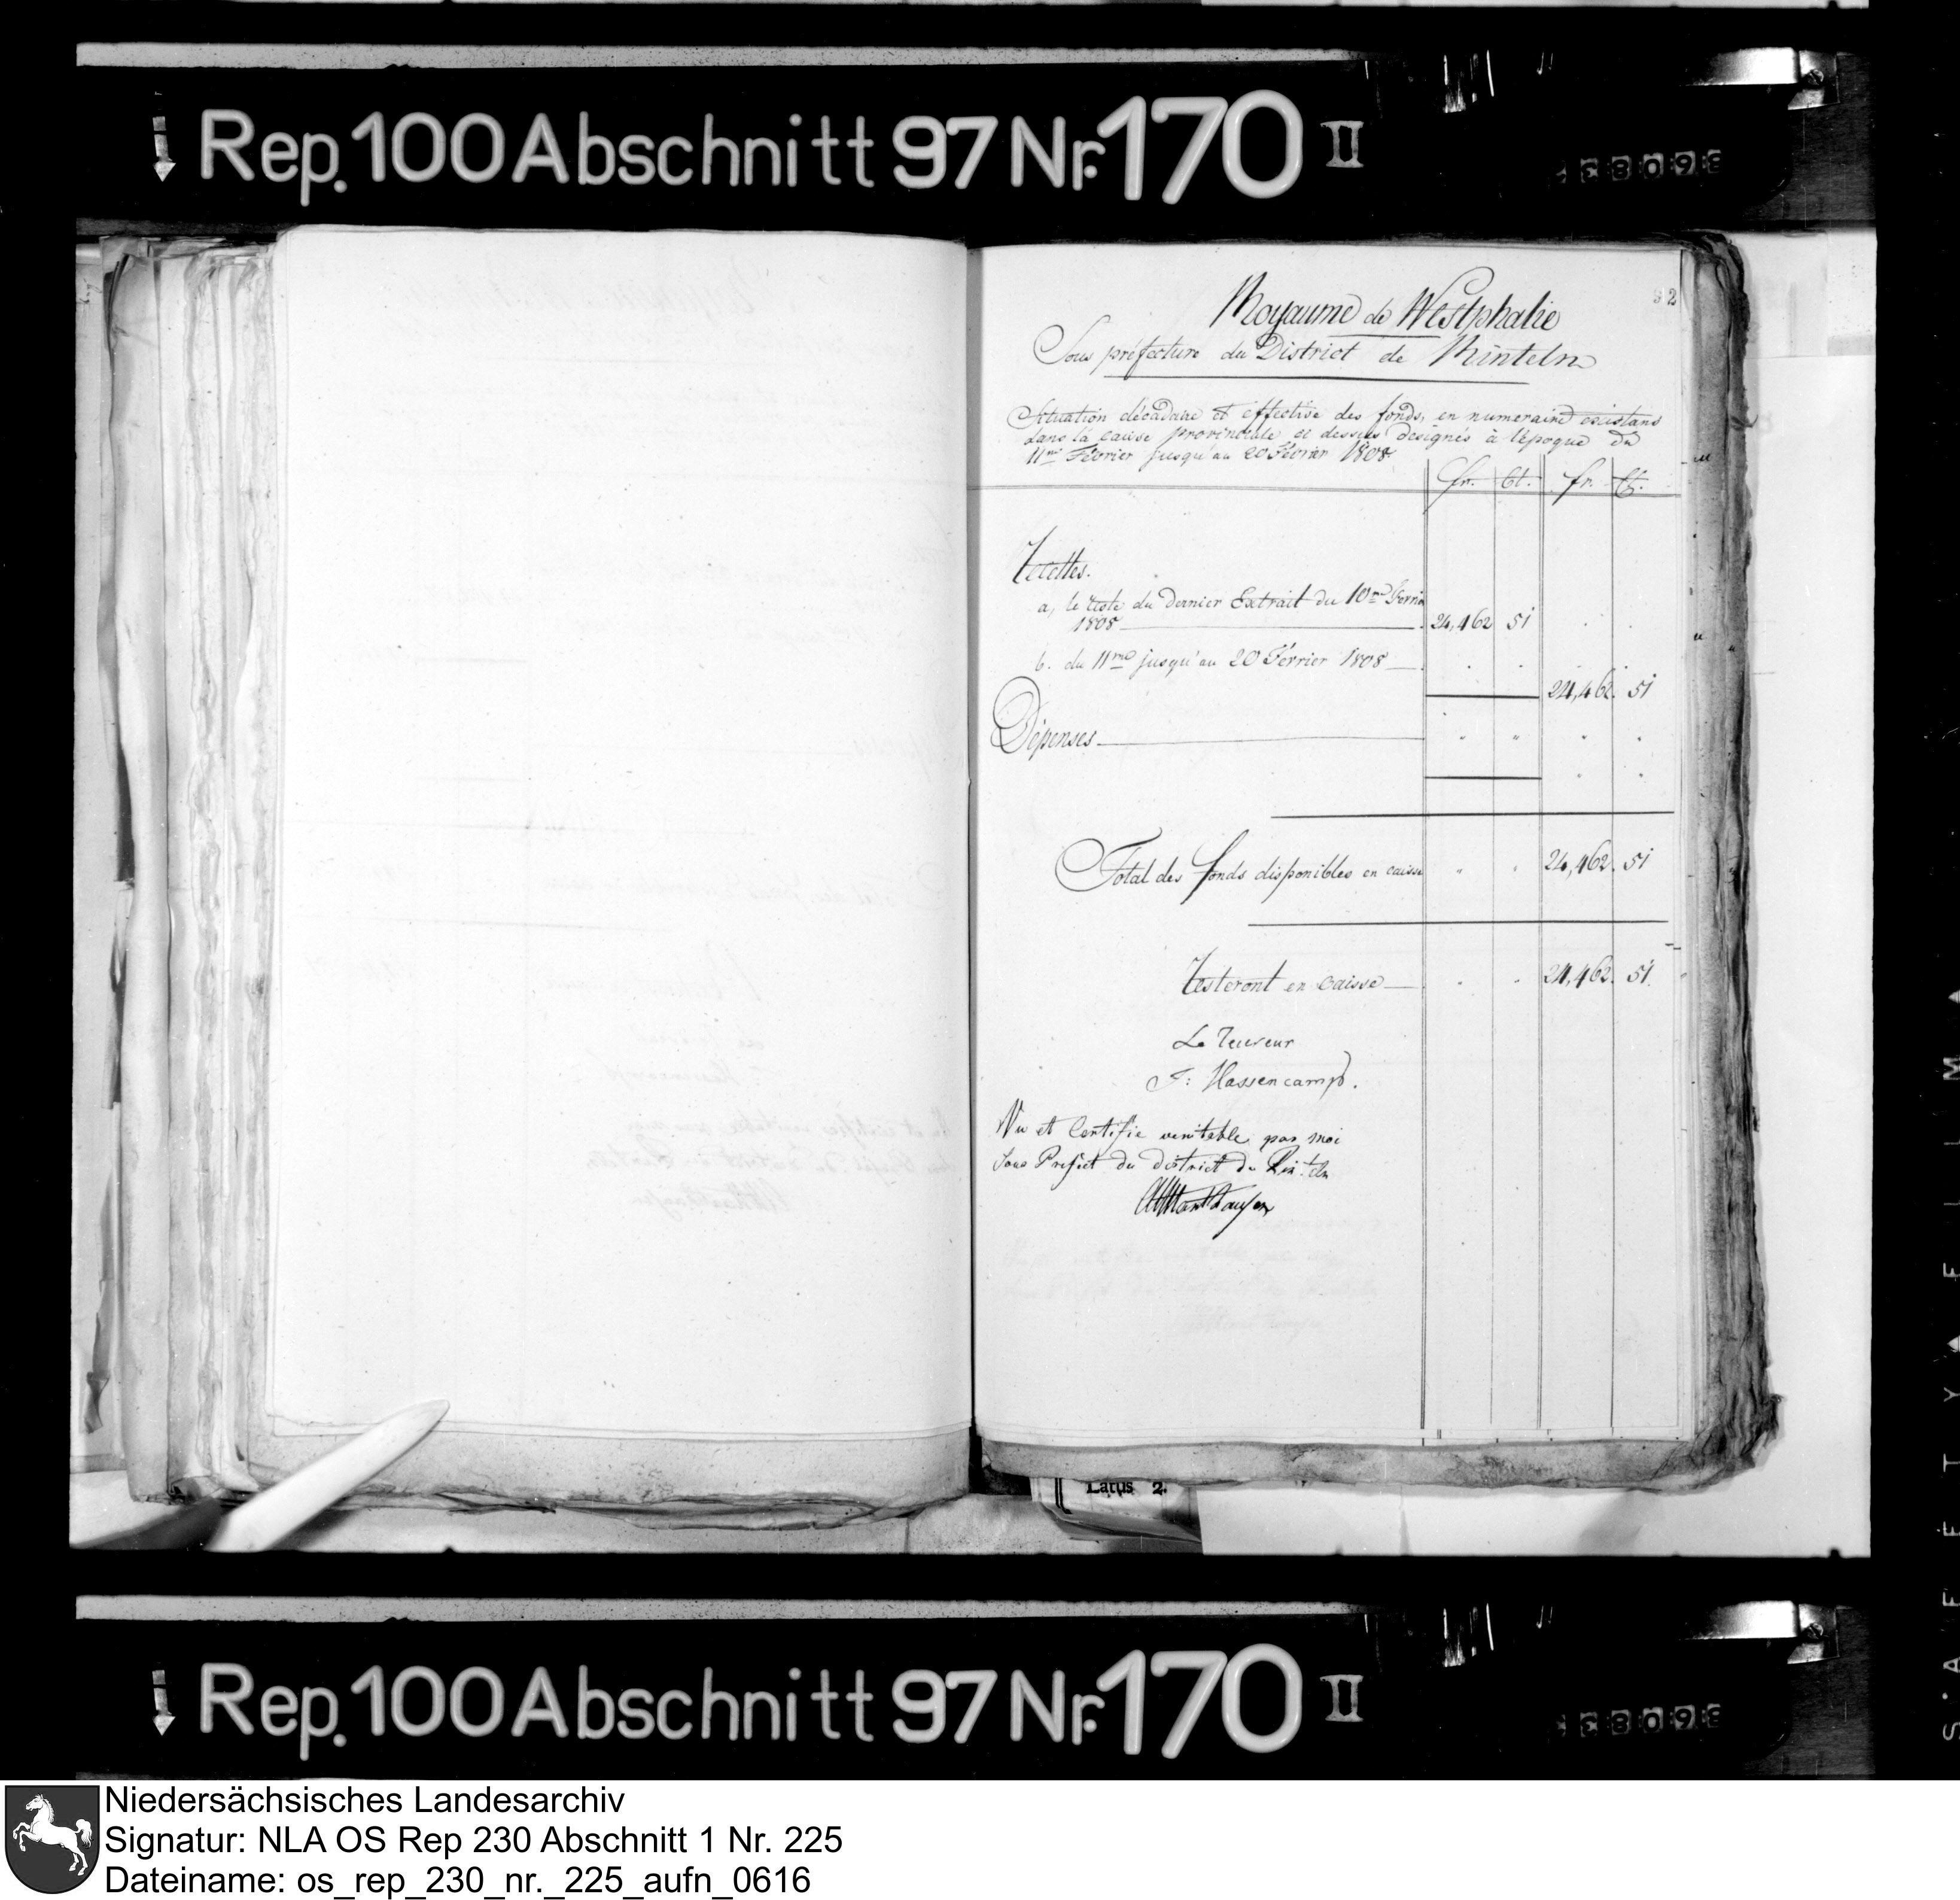 Rep. 100 Abschnitt 97 Nr. 170 II
92
Royaume de Westphalie
Sous préfecture du District de Rinteln
Situation décadaire et effective des fonds, en numeraire existans
dans la caisse provinciale ci dessus designés à l'époque du
11me Février jusqu'au 20 Février 1808.
fr. Ct. fr. Ct.
Recettes.
a, le reste du dernier Extrait du 10me Fevrier
1808 24,462 51
b. du 11me jusqu'au 20 Février 1808
24,462. 51
Dépenses
Total des fonds disponibles en caisse " " 24,462. 51
Resteront en caisse 24,462. 51
Le Receveur
F: Hassencamp.
Vu et Certifie veritable par moi
Sous Prefect du district de Rinteln
Latus 2.
Rep. 100 Abschnitt 97 Nr. 170 II
Niedersächsisches Landesarchiv
Signatur: NLA OS Rep 230 Abschnitt 1 Nr. 225
Dateiname: os_rep_230_nr._225_aufn_0616